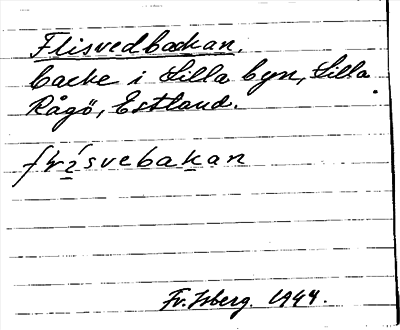 Flisvedbackan.
backe i Lilla byn, Lilla
Rågö, Estland.
frísvebakan
Fr. Isberg. 1944.